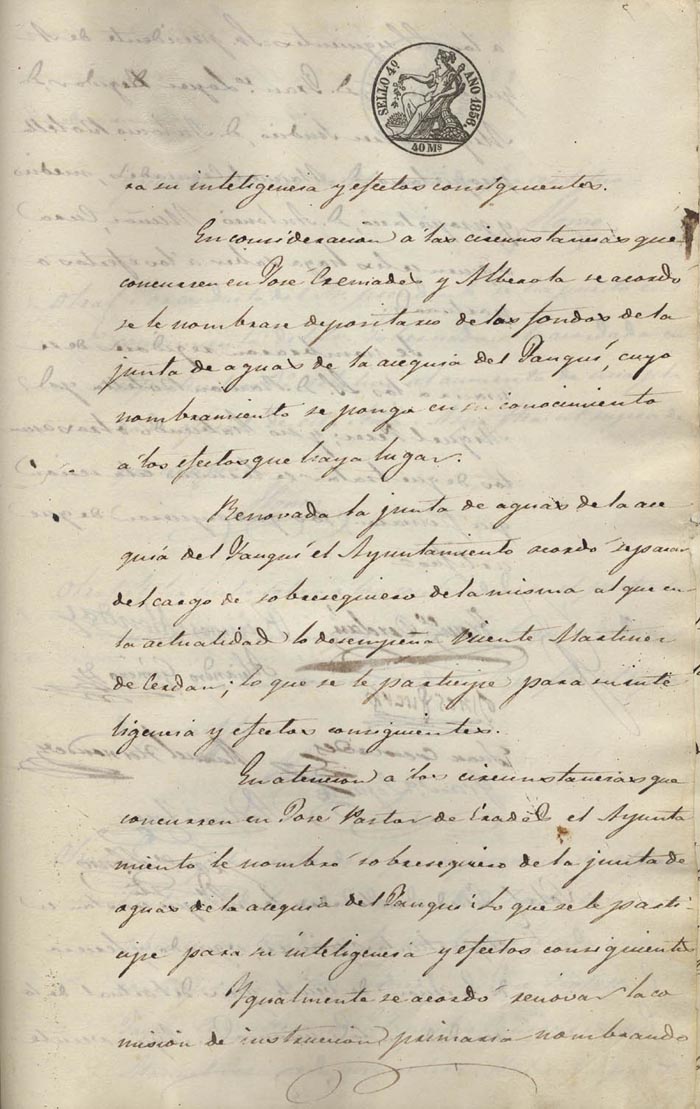 SELLO 4º AÑO 1856.
40 Ms
ra su inteligencia y efectos consiguientes.
En consideracion á las circunstancias que
concurren en José Cremades y Alberola se acordó
se le nombrase depositario de los fondos de la
junta de aguas de la acequia del Fauquí, cuyo
nombramiento se ponga en su conocimiento
á los efectos que haya lugar.
Renovada la junta de aguas de la ace
quia del Fauquí el Ayuntamiento acordó separar
del cargo de sobresequiero de la misma al que en
la actualidad lo desempeña Vicente Martinez
de Cerdan; lo que se le participe para su inte
ligencia y efectos consiguientes.
En atencion á las circunstancias que
concurren en José Pastor de Eradés el Ayunta
miento le nombró sobresequiero de la junta de
aguas de la acequia del Fauquí: Lo que se le parti
cipe para su inteligencia y efectos consiguientes
Ygualmente se acordó renovar la co
mision de instruccion primaria nombrando